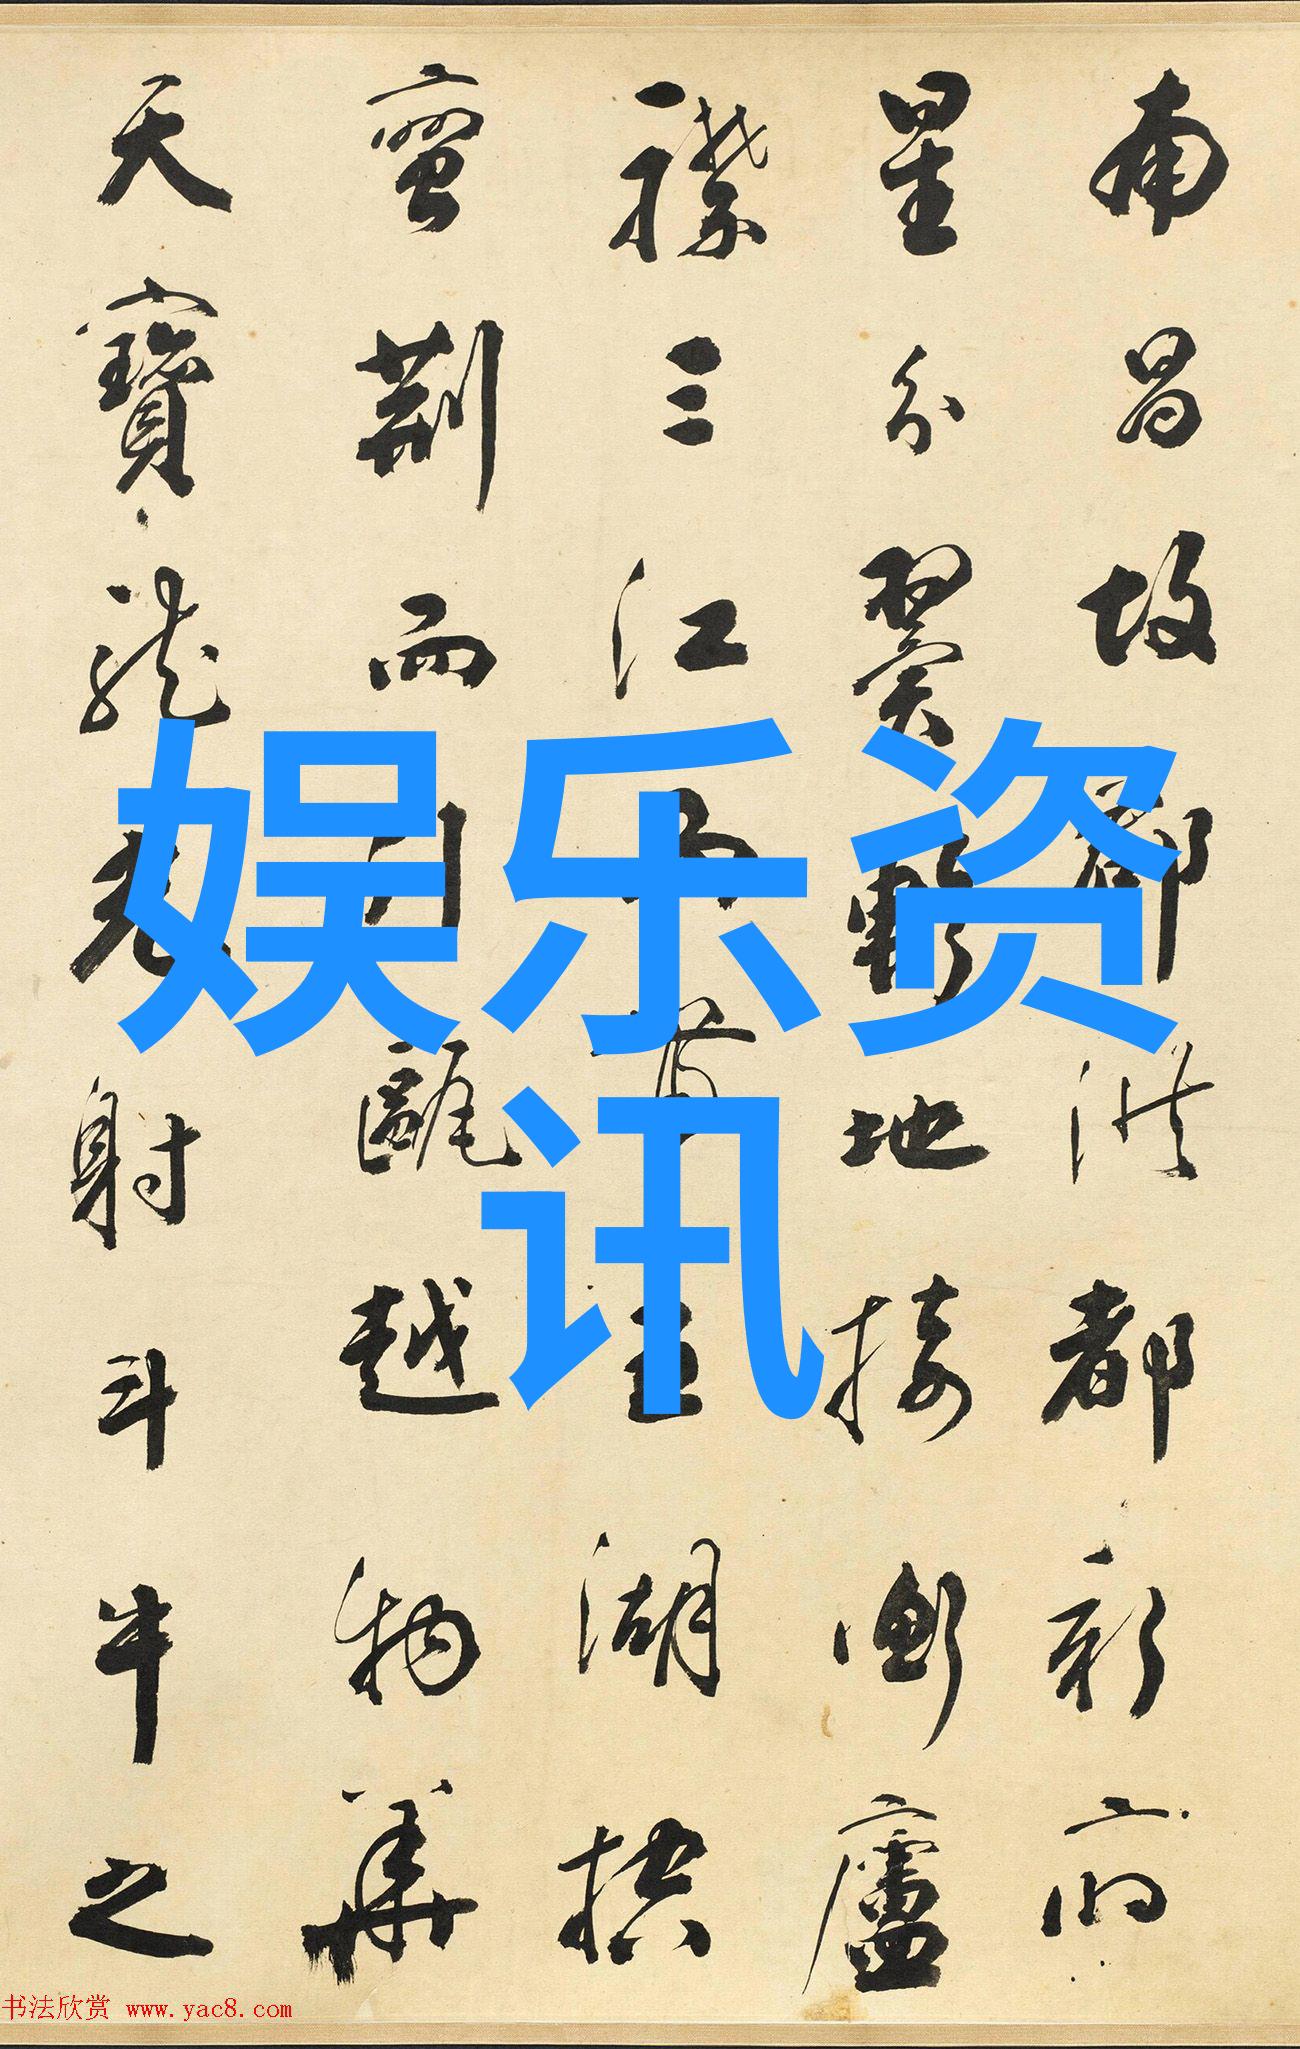 南昌故郡洪都新府
星分翼軫地接衡廬
襟三江而帶五湖控
蠻荊而引甌越物華
天寶龍光射斗牛之
娱乐资
讯
书法欣赏 www.yac8.com